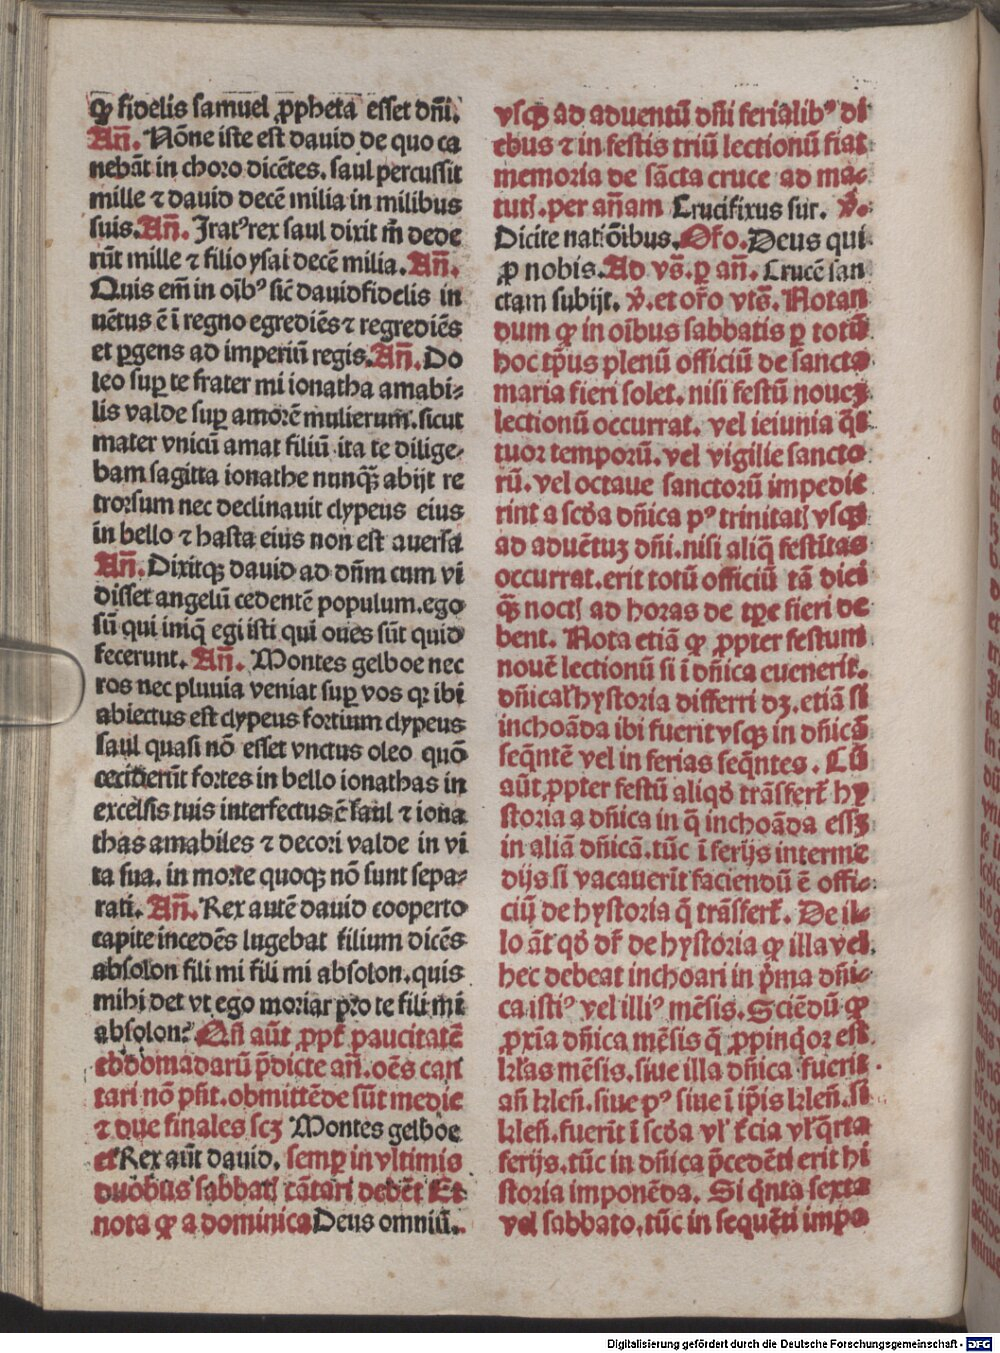 ꝙ fidelis samuel ꝓpheta esset dn̄i.
An̄. Nōne iste est dauid de quo ca
nebāt in choro dicētes. saul percussit
mille ⁊ dauid decē milia in milibus
suis. An̄. Iratꝰ rex saul dixit m̄ dede
rūt mille ⁊ filio ysai decē milia. An̄.
Quis em̄ in oībꝰ sic̄ dauid fidelis in
uētus ē ī regno egrediēs ⁊ regrediēs
et ꝑgens ad imperiū regis. An̄. Do
leo suꝑ te frater mi ionatha amabi⸗
lis valde suꝑ amorē mulierum. sicut
mater vnicū amat filiū ita te dilige⸗
bam sagitta ionathe nunqꝫ̄ abijt re
trorsum nec declinauit clypeus eius
in bello ⁊ hasta eius non est auersa
An̄. Dixitqꝫ dauid ad dn̄m cum vi
disset angelū cedentē populum. ego
sū qui iniq̄ egi isti qui oues sūt quid
fecerunt. An̄. Montes gelboe nec
ros nec pluuia veniat suꝑ vos qꝛ ibi
abiectus est clypeus fortium clypeus
saul quasi nō esset vnctus oleo quō
ceciderūt fortes in bello ionathas in
excelsis tuis interfectus ē saul ⁊ iona
thas amabiles ⁊ decori valde in vi
ta sua. in morte quoqꝫ nō sunt sepa⸗
rati. An̄. Rex autē dauid cooperto
capite incedēs lugebat filium dicēs
absolon fili mi fili mi absolon. quis
mihi det vt ego moriar pro te fili mi
absolon? Qn̄ aūt ꝓpt̄ paucitatē
ebdomadarū p̄dicte an̄. oēs can
tari nō pn̄t. obmittēde sūt medie
⁊ due finales scꝫ Montes gelboe
et Rex aūt dauid. semꝑ in vltimis
duobus sabbatꝭ cātari debēt Et
nota ꝙ a dominica Deus omniū.
vsqꝫ ad aduentū dn̄i ferialibꝰ di
ebus ⁊ in festis triū lectionū fiat
memoria de sācta cruce ad ma⸗
tutꝭ. per an̄am Crucifixus sur. v̄.
Dicite natiōibus. Or̄o. Deus qui
ꝓ nobis. Ad vs̄. ꝑ an̄. Crucē san
ctam subijt. v̄. et or̄o vts̄. Notan
dum ꝙ in oībus sabbatis ꝑ totū
hoc tp̄us plenū officiū de sancta
maria fieri solet. nisi festū noueꝫ
lectionū occurrat. vel ieiunia q̄t
tuor temporū. vel vigilie sancto
rū. vel octaue sanctorū impedie
rint a scd̄a dn̄ica pꝰ trinitatꝭ vsqꝫ
ad aduētuꝫ dn̄i. nisi aliq̄ festītas
occurrat. erit totū officiū tā diei
qꝫ̄ noctꝭ ad horas de tp̄e fieri de
bent. Nota etiā ꝙ ꝓpter festum
nouē lectionū si ī dn̄ica euenerit.
dn̄icalꝭ hystoria differri dꝫ. etiā si
inchoāda ibi fuerit vsqꝫ in dn̄icā
seqn̄tē vel in ferias seqn̄tes. Cū
aūt ꝓpter festū aliqd̄ trāsfert̄ hy
storia a dn̄ica in q̄ inchoāda essꝫ
in aliā dn̄icā. tūc ī ferijs interme
dijs si vacauerit faciendū ē offi⸗
ciū de hystoria q̄ trāsfert̄. De il⸗
lo āt qd̄ dr̄ de hystoria ꝙ illa vel
hec debeat inchoari in p̄ma dn̄i⸗
ca istiꝰ vel illiꝰ mēsis. Sciēdū ꝙ
ꝓxīa dn̄ica mēsis q̄ ꝓpinqͥor est
kl̄as mēsis. siue illa dn̄ica fuerit
an̄ klen̄. siue pꝰ siue ī ip̄is klen̄. si
klen̄. fuerīt ī scd̄a vl̄ t̄cia vl̄ q̄rta
ferijs. tūc in dn̄ica p̄cedēti erit hi
storia imponēda. Si qͥnta sexta
vel sabbato. tūc in sequēti impo
Digitalisierung gefördert durch die Deutsche Forschungsgemeinschaft - DFG